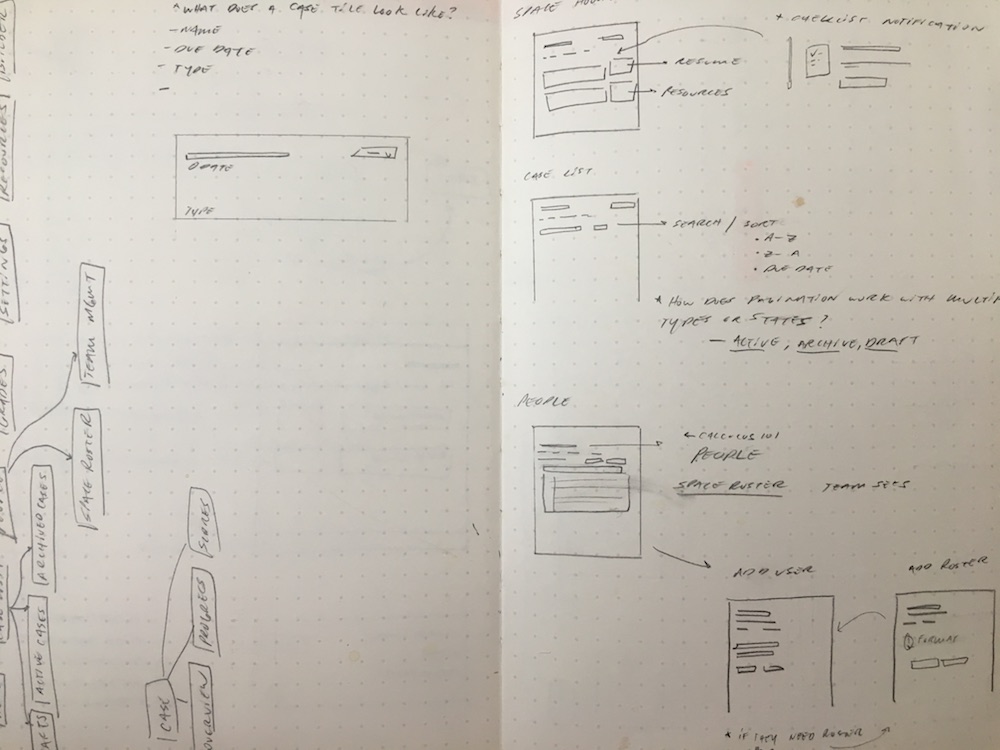 * WHAT DOES A CASE TILE LOOK LIKE?
- NAME
- DUE DATE
- TYPE
-
DDATE
TYPE
BUILDER
RESOURCES
SETTINGS
GRADES
TEAM MGMT
SPACE ROSTER
ARCHIVED CASES
ACTIVE CASES
CASE
SCORES
PROGRESS
OVERVIEW
SPACE
* CHECKLIST NOTIFICATION
RESUME
RESOURCES
CASE LIST
SEARCH / SORT
• A-Z
• Z-A
• DUE DATE
* HOW DOES PAGINATION WORK WITH
TYPES OR STATES?
- ACTIVE, ARCHIVE, DRAFT
PEOPLE
← CALCULUS 101
PEOPLE
SPACE ROSTER TEAM SETS
ADD USER
ADD ROSTER
FORMAT
* IF THEY NEED ROSTER